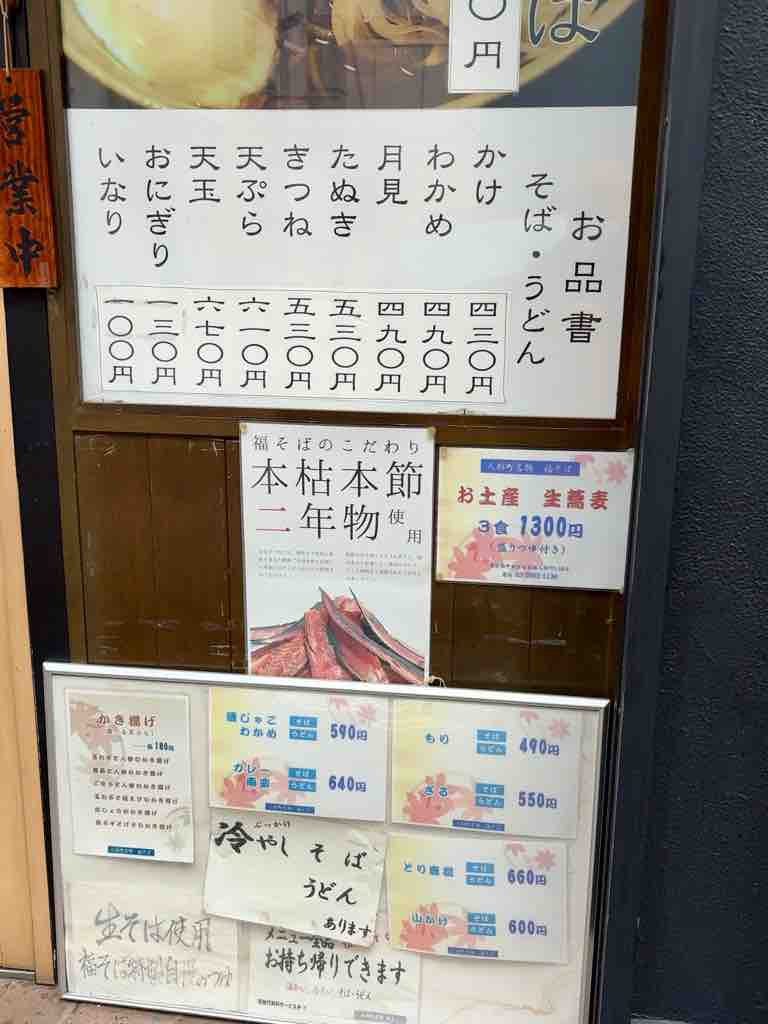 ば
〇円
営業中
お品書
そば・うどん
かけ 四三〇円
わかめ 四九〇円
月見 四九〇円
たぬき 五三〇円
きつね 五三〇円
天ぷら 六一〇円
天玉 六七〇円
おにぎり 一三〇円
いなり 一〇〇円
福そばのこだわり
本枯本節
二年物使用
人形町名物 福そば
お土産 生蕎麦
3食 1300円
(盛りつゆ付き)
かき揚げ
各180円
わかめ そば うどん 590円
カレー南蛮 そば うどん 640円
もり そば うどん 490円
ざる そば うどん 550円
冷やし そば
ぶっかい
うどん
あります
とり南蛮 そば うどん 660円
山かけ そば うどん 600円
生そば使用
福そば特製
メニュー全品
お持ち帰りできます